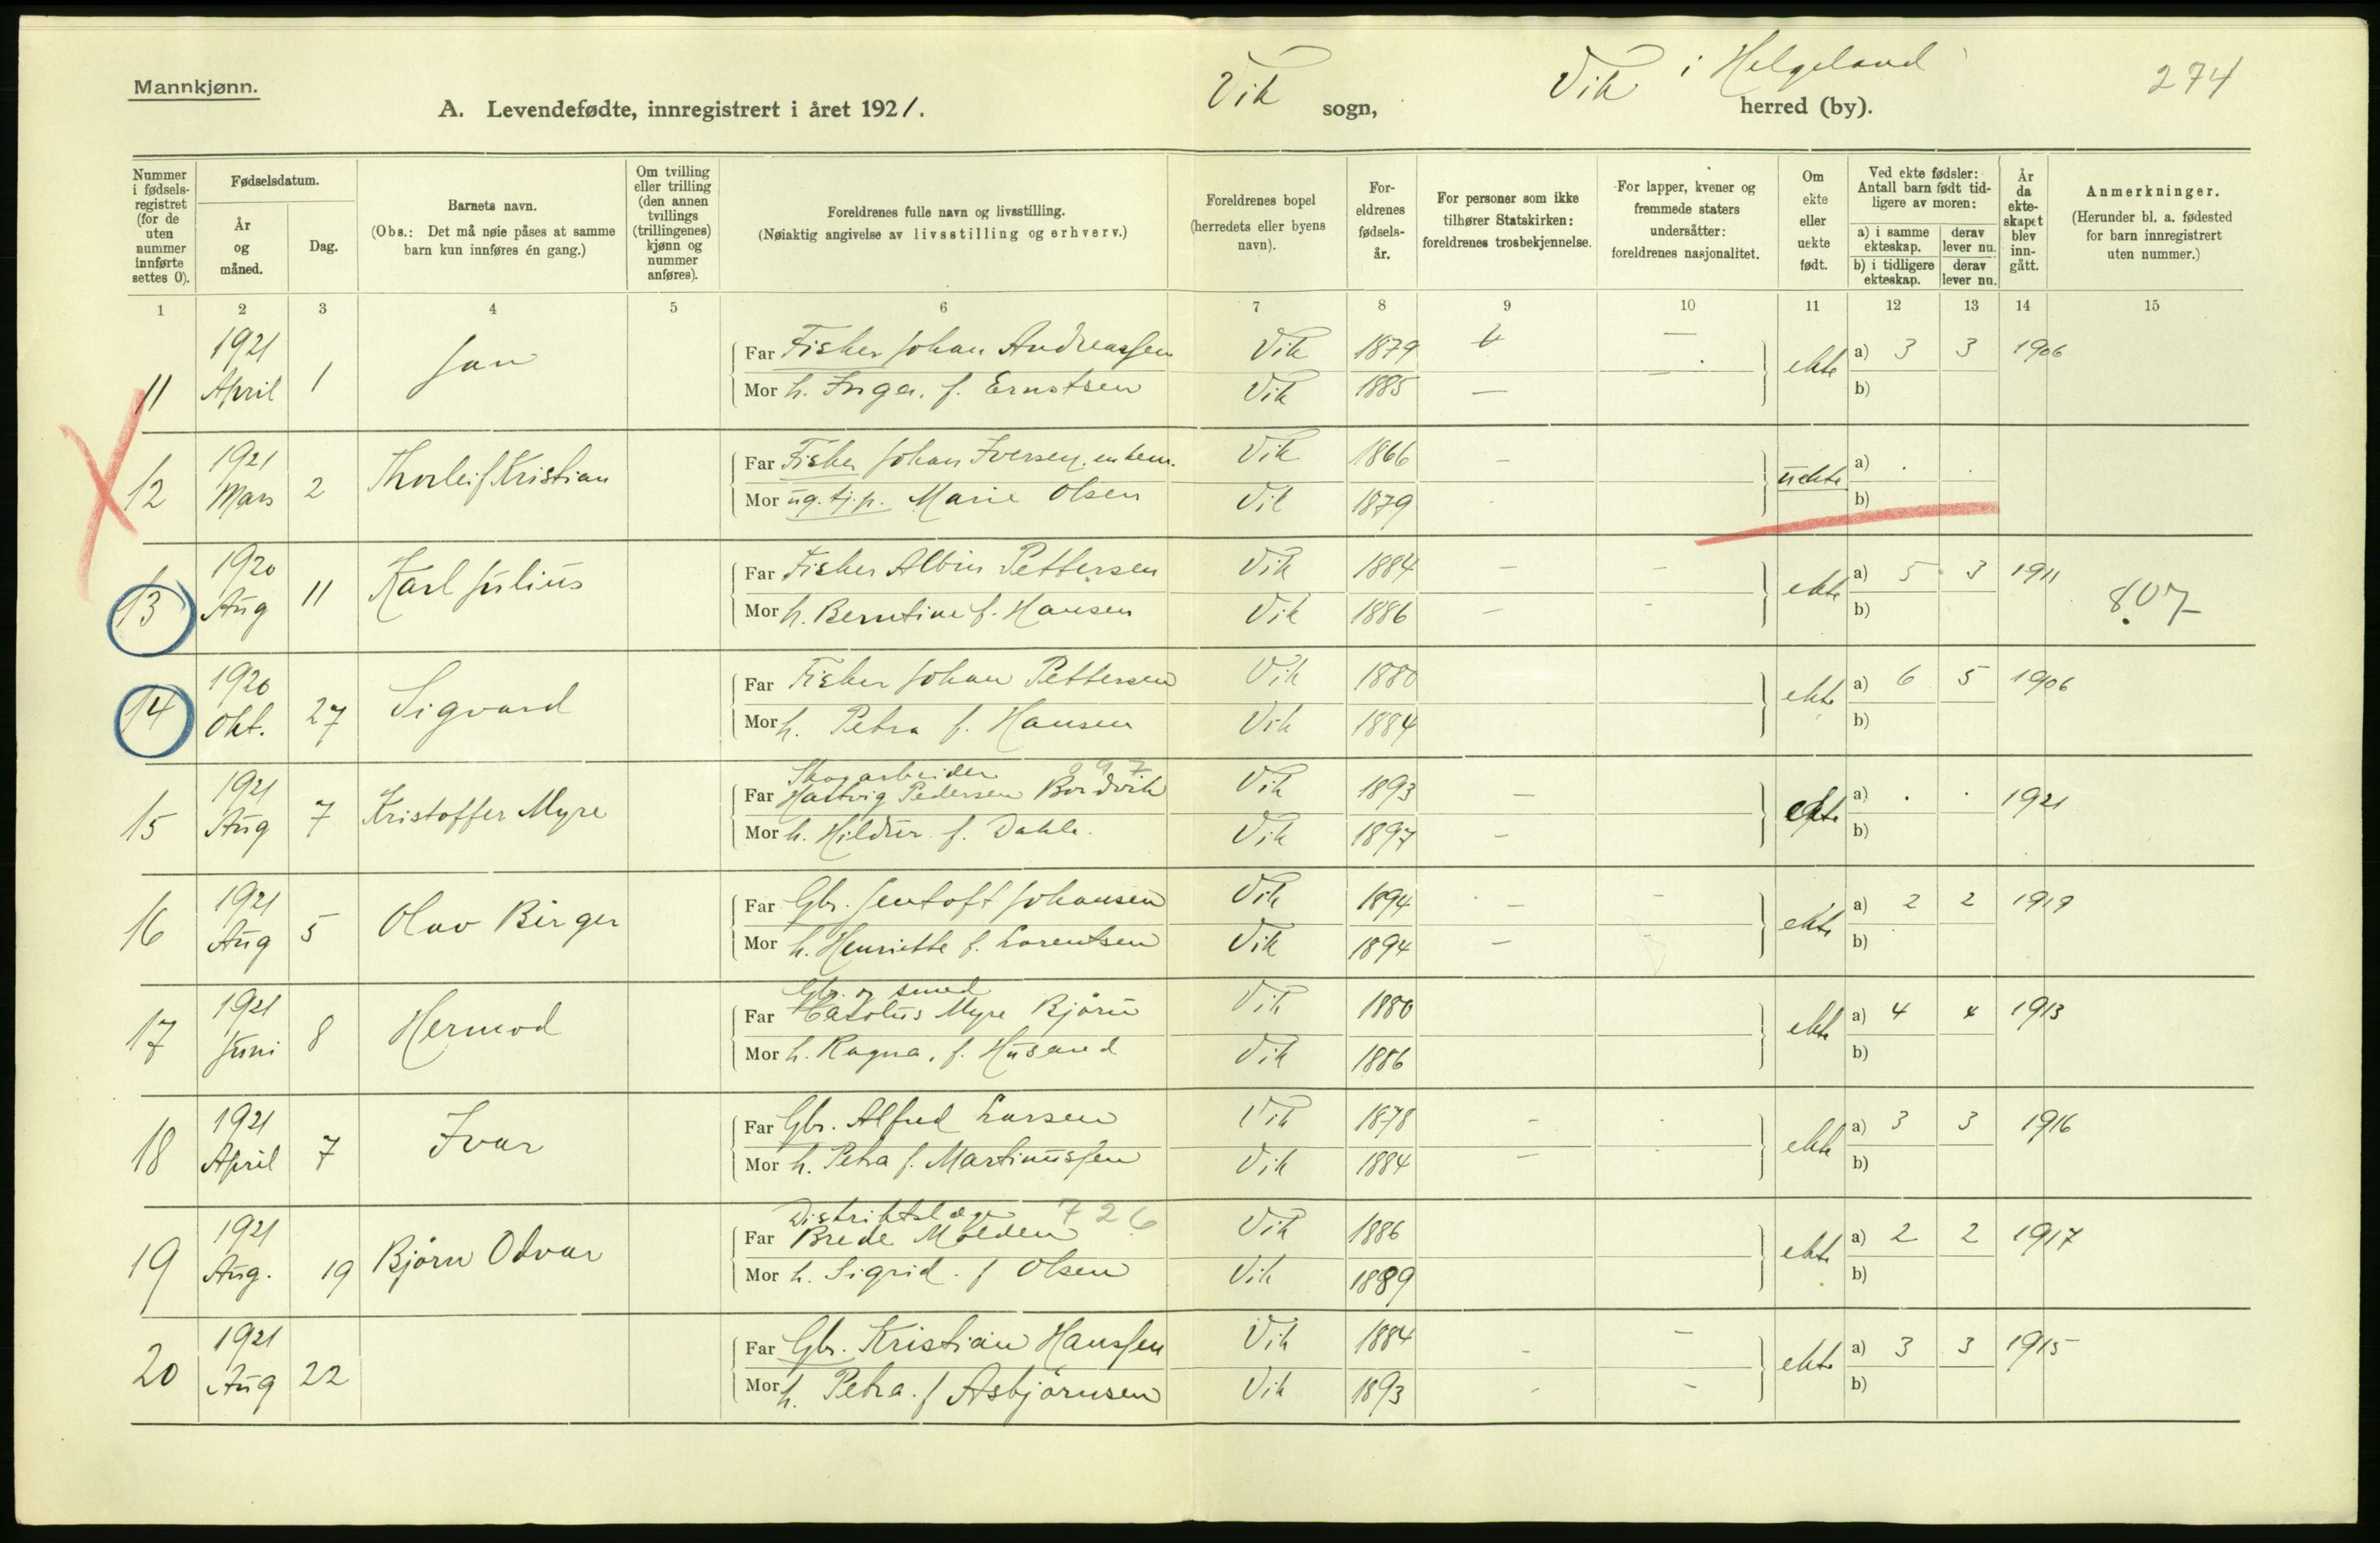 Mannkjønn.
A. Levendefødte, innregistrert i året 1921.
Vik sogn, Vik i Helgeland herred (by).
274
Nummer i fødselsregistret (for de uten nummer innførte settes 0).
Fødselsdatum.
År og måned.
Dag.
Barnets navn.
(Obs.: Det må nøie påses at samme barn kun innføres én gang.)
Om tvilling eller trilling (den annen tvillings (trillingenes) kjønn og nummer anføres).
Foreldrenes fulle navn og livsstilling.
(Nøiaktig angivelse av livsstilling og erhverv.)
Foreldrenes bopel (herredets eller byens navn).
Foreldrenes fødselsår.
For personer som ikke tilhører Statskirken: foreldrenes trosbekjennelse.
For lapper, kvener og fremmede staters undersåtter: foreldrenes nasjonalitet.
Om ekte eller uekte født.
Ved ekte fødsler: Antall barn født tidligere av moren:
a) i samme ekteskap. derav lever nu.
b) i tidligere ekteskap. derav lever nu.
År da ekteskapet blev inngått.
Anmerkninger.
(Herunder bl. a. fødested for barn innregistrert uten nummer.)
1 2 3 4 5 6 7 8 9 10 11 12 13 14 15
11 1921 April 1 Jan
Far Fisker Johan Andreassen Vik 1879 — ekte a) 3 3 1906
Mor h. Inga, f. Ernstsen Vik 1885 — — b)
12 1921 Mars 2 Thorleif Kristian
Far Fisker Johan Iversen, enkem. Vik 1866 — uekte a)
Mor ug. tj.p. Marie Olsen Vik 1879 b)
13 1920 Aug 11 Karl Julius
Far Fisker Albin Pettersen Vik 1884 — — ekte a) 5 3 1911
Mor h. Berntine f. Hansen Vik 1886 — - b)
807
14 1920 Okt. 27 Sigvard
Far Fisker Johan Pettersen Vik 1880 ekte a) 6 5 1906
Mor h. Petra f. Hansen Vik 1884 b)
15 1921 Aug 7 Kristoffer Myre
Skogarbeider 897
Far Hartvig Pedersen Bordvik Vik 1893 — ekte a) . . 1921
Mor h. Hildur f. Dahle. Vik 1897 — b)
16 1921 Aug 5 Olav Birger
Far Gbr. Jentoft Johansen Vik 1894 — — ekte a) 2 2 1919
Mor h. Henriette f. Lorentsen Vik 1894 — b)
17 1921 Juni 8 Hermod
Gbr. og smed
Far Myre Bjørn Vik 1880 ekte a) 4 4 1913
Mor h. Ragna, f. Husand Vik 1886 b)
18 1921 April 7 Ivar
Far Gbr. Alfred Larsen Vik 1878 - ekte a) 3 3 1916
Mor h. Petra f. Martinussen Vik 1884 — b)
19 1921 Aug. 19 Bjørn Odvar
Distriktslæge 726
Far Brede Molden Vik 1886 ekte a) 2 2 1917
Mor h. Sigrid. f Olsen Vik 1889 b)
20 1921 Aug 22
Far Gbr. Kristian Hanssen Vik 1884 - — ekte a) 3 3 1915
Mor h. Petra. f Asbjørnsen Vik 1893 - - b)